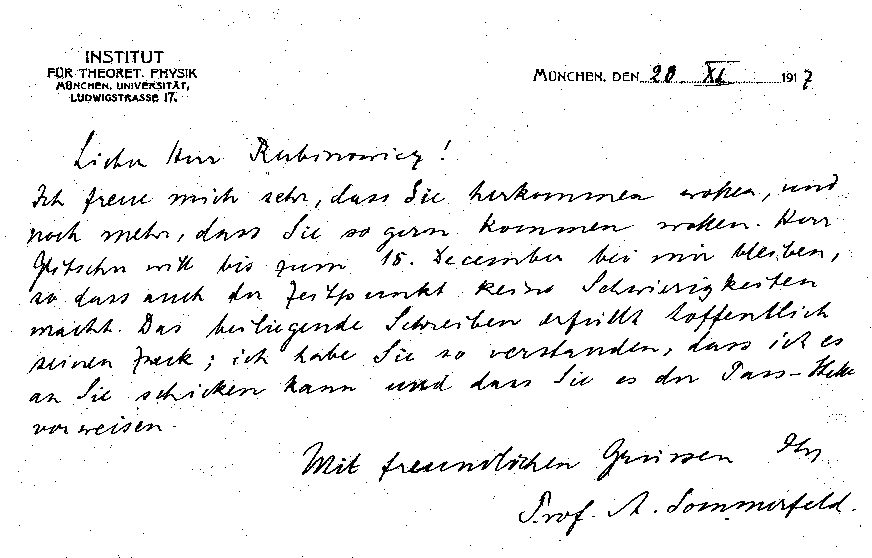 INSTITUT
FÜR THEORET. PHYSIK
MÜNCHEN, UNIVERSITÄT,
LUDWIGSTRASSE 17.
MÜNCHEN, DEN 20 XI. 1917
Lieber Herr Rubinowicz!
Ich freue mich sehr, dass Sie herkommen wollen, und
noch mehr, dass Sie so gern kommen wollen. Herr
will bis zum 15. December bei mir bleiben,
so dass auch der Zeitpunkt keine Schwierigkeiten
macht. Das beiliegende Schreiben erfüllt hoffentlich
seinen Zweck; ich habe Sie so verstanden, dass ich es
an Sie schicken kann und dass Sie es der Pass-Stelle
vorweisen.
Mit freundlichen Grüssen Ihr
Prof. A. Sommerfeld.